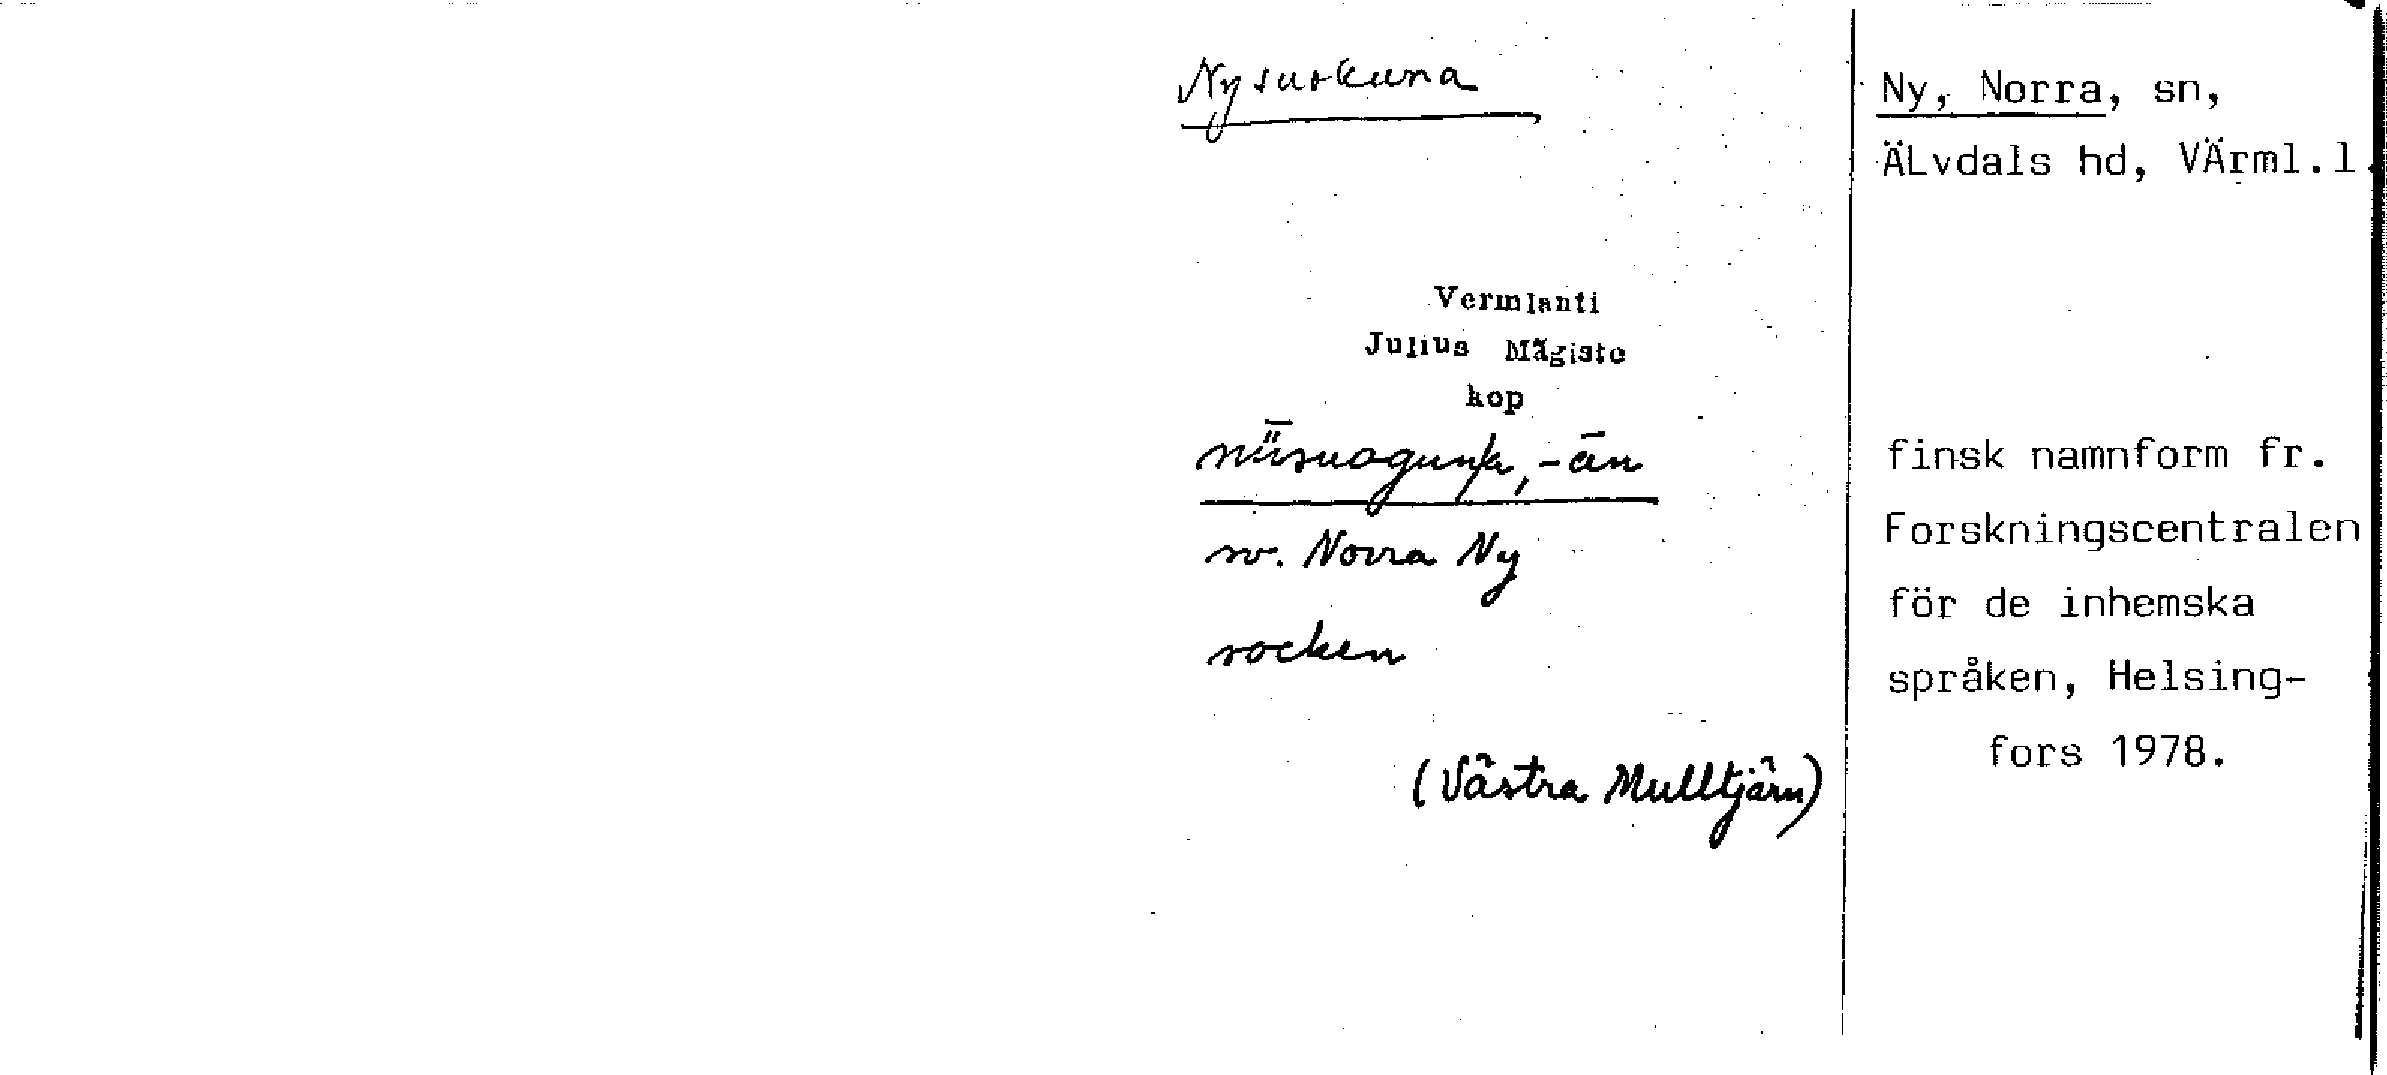 Nysuokuna
Vermlanti
Julius Mägiste
kop
nǖsuogunᵏ/ₐ, -ān
sv. Norra Ny
socken
(Västra Mulltjärn)
Ny, Norra, sn,
ÄLvdals hd, VÄrml.l.
finsk namnform fr.
Forskningscentralen
för de inhemska
språken, Helsing-
fors 1978.